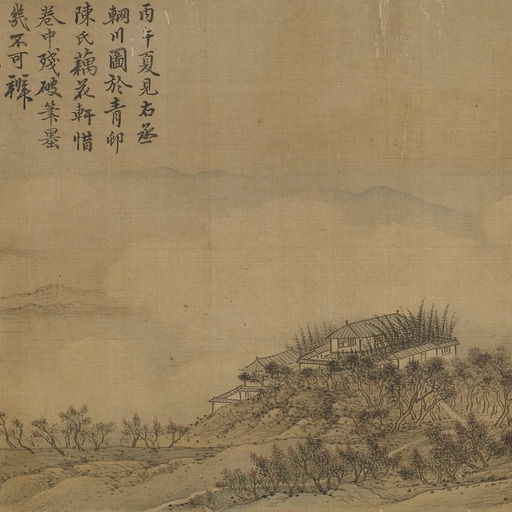 丙午夏見右丞
輞川圖於青卯
陳氏藕花軒惜
卷中殘破筆墨
幾不可辨